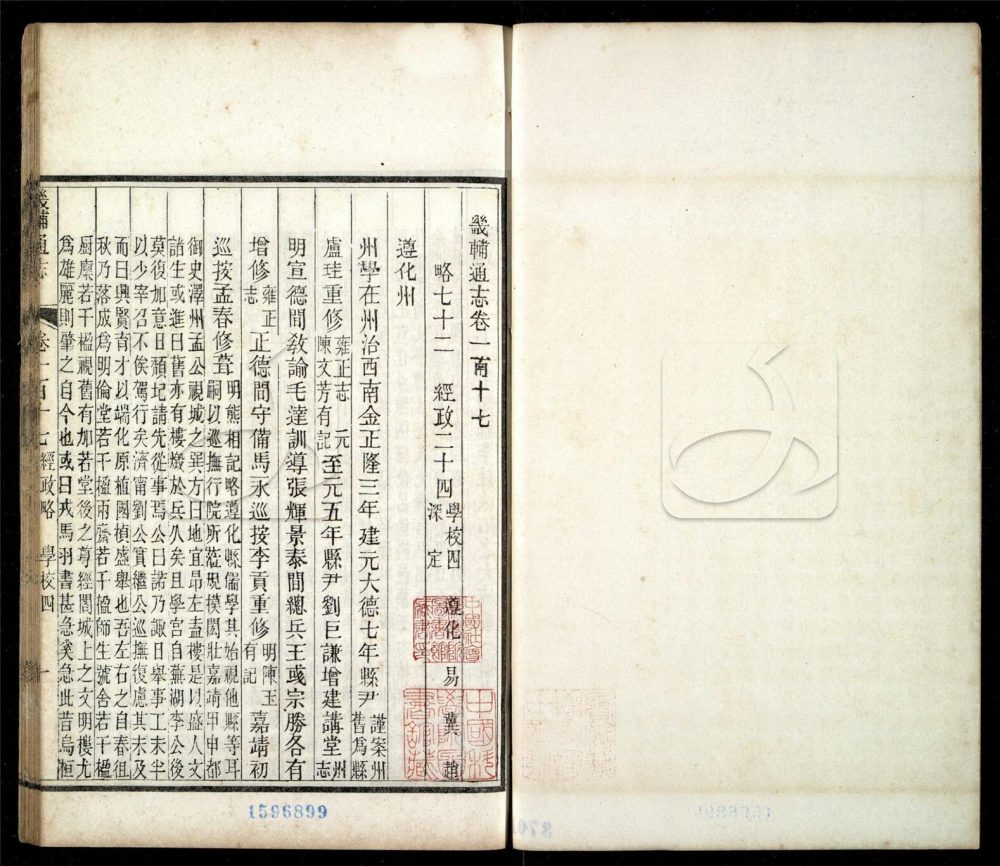 畿輔通志卷一百十七
略七十二 經政二十四 學校四 遵化 易 冀 趙
深 定
遵化州
州學在州治西南金正隆三年建元大德七年縣尹 謹案州
舊為縣
盧珪重修 雍正志 元
陳文芳有記 至元五年縣尹劉巨謙增建講堂 州
志
明宣德間教諭毛達訓導張輝景泰間總兵王彧宗勝各有
增修 雍正
志 正德間守備馬永巡按李貢重修 明陳玉
有記 嘉靖初
巡按孟春修葺 明熊相記略遵化縣儒學其始視他縣等耳
嗣以巡撫行院所蒞規模閎壯嘉靖甲申都
御史澤州孟公視城之巽方日地宜昂左盍樓是以盛人文
諸生或進曰舊亦有樓燬於兵久矣且學宮自蕪湖李公後
莫復加意日頹圮請先從事焉公曰諾乃諏日舉事工未半
以少宰召不俟駕行矣濟甯劉公實繼公巡撫復慮其未及
而曰興賢育才以端化原植國楨盛舉也吾左右之自春徂
秋乃落成為明倫堂若干楹兩齋若干楹師生號舍若干楹
廚廪若干楹視舊有加若堂後之尊經閣城上之文明樓尤
為雄麗則肇之自今也或曰戎馬羽書甚急奚急此昔烏桓
畿輔通志 卷一百十七 經政略 學校四 一
1596899